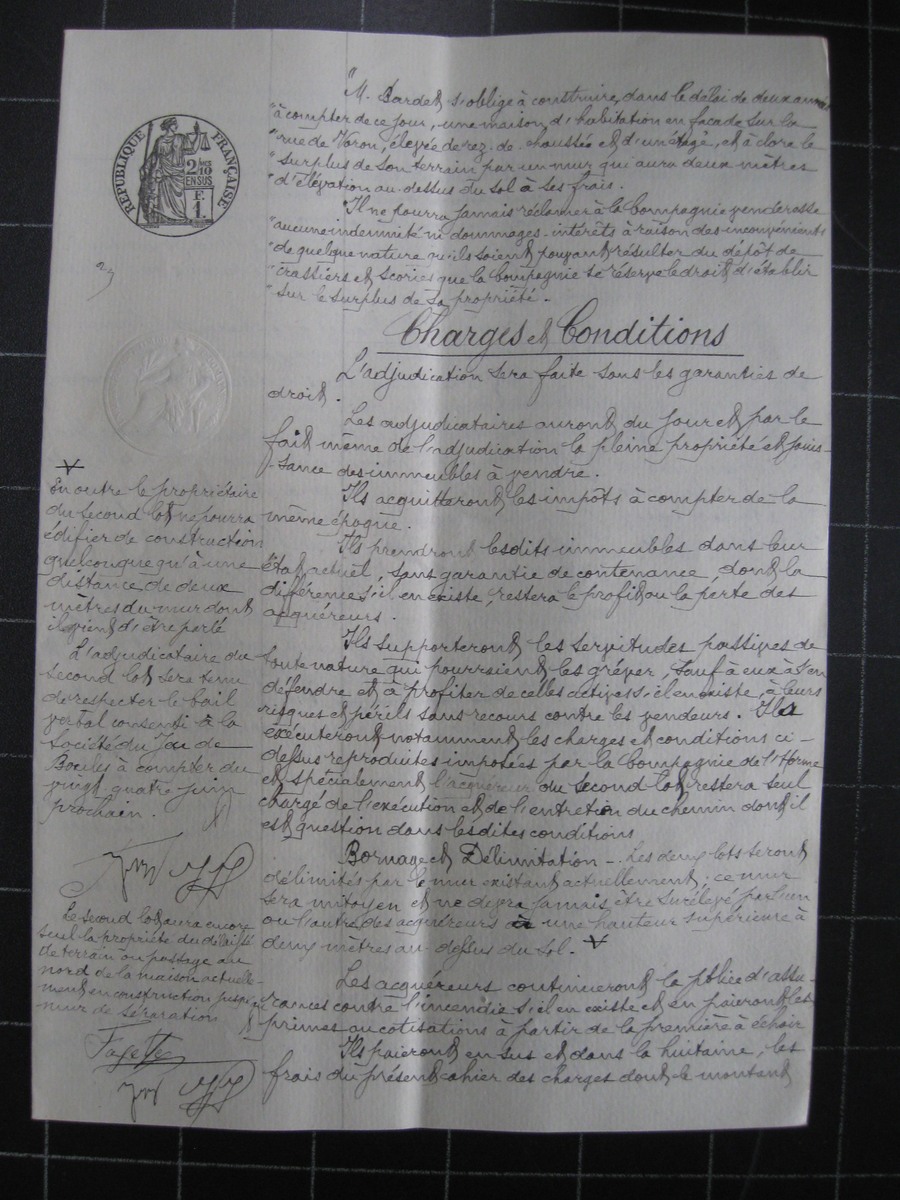 RÉPUBLIQUE FRANÇAISE
2 10
EN SUS
F.
1.
"M. Bardet s'oblige à construire, dans le délai de deux années
"à compter de ce jour, une maison d'habitation en façade sur la
"rue de Voron, élevée de rez-de-chaussée et d'un étage, et à clore le
"surplus de son terrain par un mur qui aura deux mètres
"d'élévation au-dessus du sol à ses frais.
"Il ne pourra jamais réclamer à la Compagnie venderesse
"aucune indemnité ni dommages-intérêts à raison des inconvénients
"de quelque nature qu'ils soient pouvant résulter du dépôt de
"crassiers et scories que la Compagnie se réserve le droit d'établir
"sur le surplus de sa propriété.
Charges et Conditions
L'adjudication sera faite sous les garanties de
droit.
Les adjudicataires auront du jour et par le
fait même de l'adjudication la pleine propriété et jouis-
-sance des immeubles à vendre.
Ils acquitteront les impôts à compter de la
même époque.
Ils prendront lesdits immeubles dans leur
état actuel, sans garantie de contenance, dont la
différence s'il en existe, restera le profit ou la perte des
acquéreurs.
Ils supporteront les servitudes passives de
toute nature qui pourraient les gréver, sauf à eux à s'en
défendre et à profiter de celles actives s'il en existe, à leurs
risques et périls sans recours contre les vendeurs. Ils
exécuteront notamment les charges et conditions ci-
dessus reproduites imposées par la Compagnie de l'Horme
et spécialement l'acquéreur du second lot restera seul
chargé de l'exécution et de l'entretien du chemin dont il
est question dans lesdites conditions
Bornage et Délimitation -. Les deux lots seront
délimités par le mur existant actuellement; ce mur
sera mitoyen et ne devra jamais être surélevé par l'un
ou l'autre des acquéreurs à une hauteur supérieure à
deux mètres au-dessus du sol.
Les acquéreurs continueront la police d'assu-
rances contre l'incendie s'il en existe et en paieront les
primes ou cotisations à partir de la première à échoir
Ils paieront en sus et dans la huitaine, les
frais du présent cahier des charges dont le montant
En outre le propriétaire
du second lot ne pourra
édifier de construction
quelconque qu'à une
distance de deux
mètres du mur dont
il vient d'être parlé
L'adjudicataire du
second lot sera tenu
de respecter le bail
verbal consenti à la
Société du Jeu de
Boules à compter du
vingt quatre juin
prochain.
Le second lot aura encore
seul la propriété du
de terrain ou passage au
nord de la maison actuelle-
ment en construction jusqu'
mur de séparation
Fayette